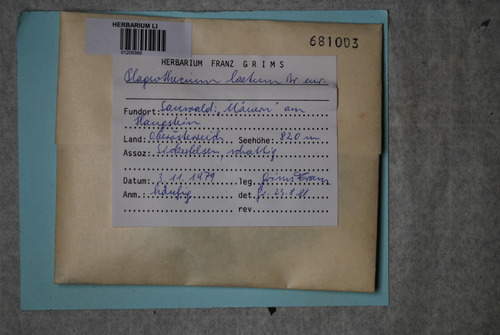 HERBARIUM LI
01209389
681003
HERBARIUM FRANZ GRIMS
Plagiothecium laetum Br. eur.
Fundort: Sauwald: "Mauern" am
Haugstein
Land: Oberösterreich Seehöhe: 820 m
Assoz: schattig
Datum: 3.11.1979 leg. Grims Franz
Anm.: häufig det. Gr. 23.8.81
rev.